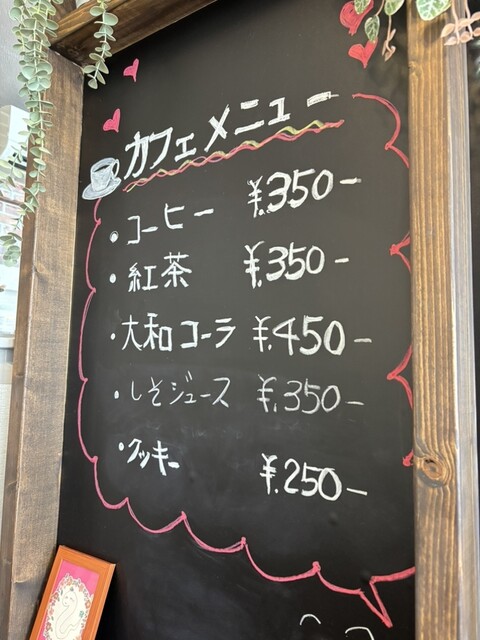 カフェメニュー
・コーヒー ¥.350-
・紅茶 ¥.350-
・大和コーラ ¥.450-
・しそジュース ¥.350-
・クッキー ¥.250-